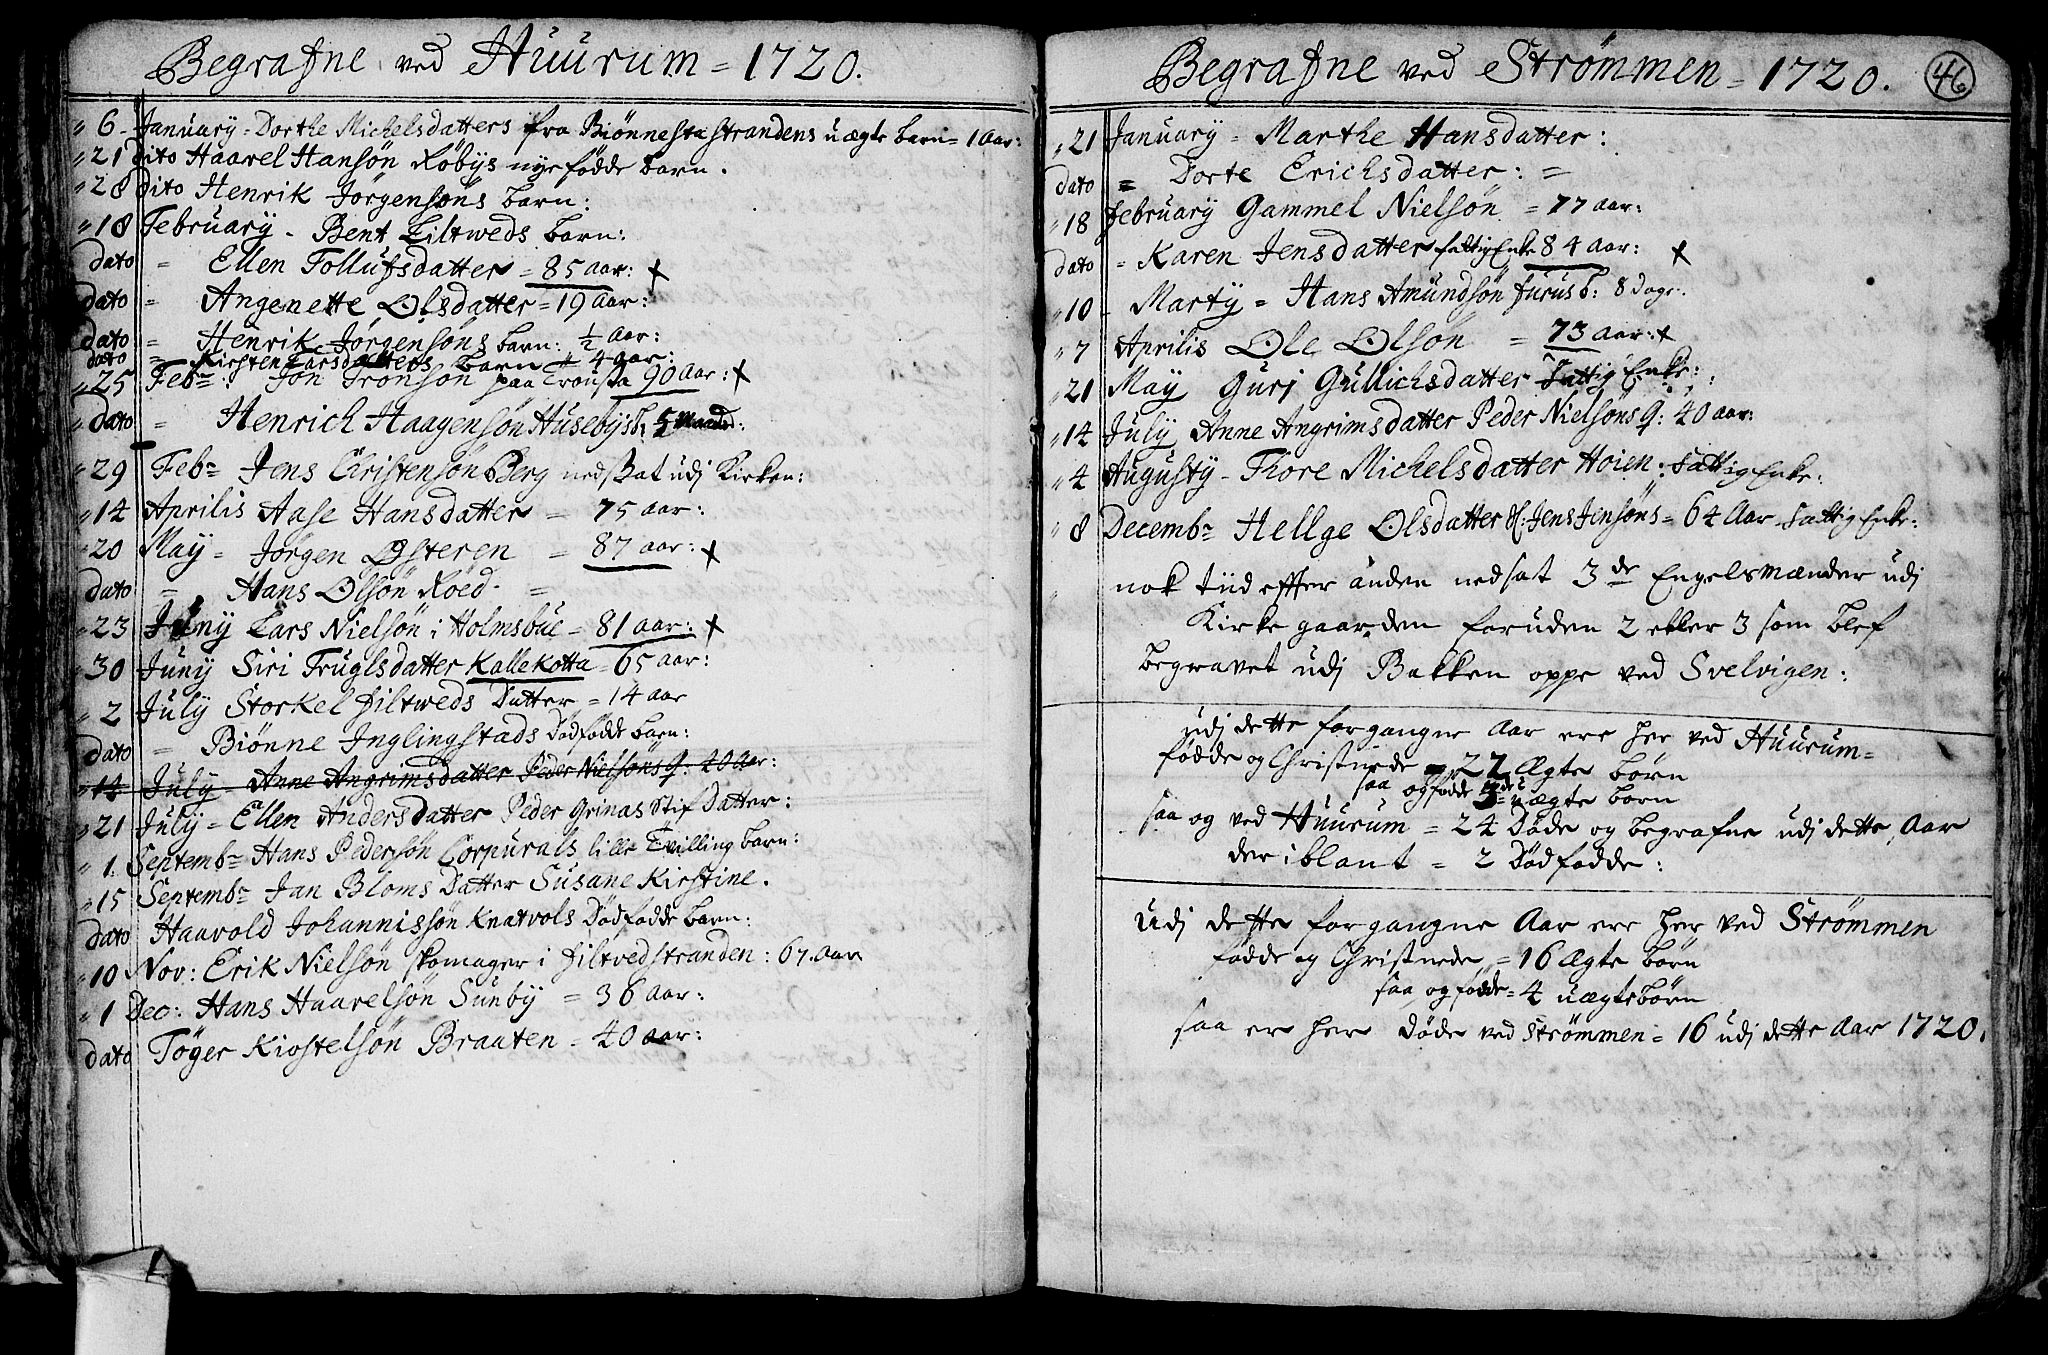 Begrafne ved Huurum = 1720.
" 6 - January - Dorthe Michelsdatters fra Biønnestastrandens uægte barn = 1 aar:
" 21 dito Haarel Hansøn Røbys nyefødde barn.
" 28 dito Henrik Jørgensøns barn:
" 18 February - Bent Tiltweds barn:
dato = Ellen Tollufsdatter = 85 aar: +
dato = Angenette Olsdatter = 19 aar:
dato = Henrik Jørgensøns barn: ½ aar:
dato = Kirsten Larsdatters barn 4 aar:
" 25 Febr: Jon Tronsøn paa 90 aar: +
" dato = Henrich Haagensøn Husebys b: 5 Maaned:
" 29 Febr Jens Christensøn Berg nedsat udj Kirken:
" 14 Aprilis Aase Hansdatter = 75 aar:
" 20 May = Jørgen Østeren = 87 aar: +
dato = Hans Olsøn Røed =
" 23 Juny Lars Nielsøn i Holmsbue = 81 aar: +
" 30 Juny Siri Truglsdatter Kallekotta = 65 aar:
" 2 July Storkel Filtweds Datter = 14 aar
dato = Biønne Inglingstads Dødfødde barn:
" 14 July - Anne Angrimsdatter Peder Nielsøns q: 40 aar:
" 21 July = Ellen Andersdatter Peder Grinas Stif Datter:
" 1. Septembr Hans Pedersøn Corpurals lille Tvilling barn:
" 15 Septembr Jan Bloms Datter Susane Kirstine.
dato Haavold Johannissøn Knatvols Dødfødde barn:
" 10 Nov: Erik Nielsøn skomager i Filtvedstranden: 67. aar
" 1 Dec: Hans Haarelsøn Sunby = 36 aar:
dato Tøger Kiostelsøn Brauten = 40 aar:
Begrafne ved Strømmen = 1720. 46
" 21 January = Marthe Hansdatter:
dato = Dorte Erichsdatter: =
" 18 February Gammel Nielsøn = 77 aar:
dato = Karen Jensdatter fattig Enke 84 aar: +
" 10 - Marty = Hans Amundsøn Furus b: 8 dage.
" 7 Aprilis Ole Olsøn = 73 aar: +
" 21 May Guri Gullichsdatter fattig Enke:
" 14 July Anne Angrimsdatter Peder Nielsøns q: 40 aar:
" 4 Augusty - Thore Michelsdatter Hoien: fattig Enke:
" 8 Decembr Hellge Olsdatter Jens Jensøns = 64 Aar fattig Enke:
" nok tiid effter anden nedsat 3de Engelsmænder udj
Kirke gaarden foruden 2 eller 3 som blef
begravet udj Bakken oppe ved Svelvigen:
udj dette forgangne Aar ere her ved Huurum =
fødde og Christnede = 22 Ægte børn
saa og fødde 3de uægte børn
saa og ved Huurum = 24 Døde og begrafne udj dette Aar
der iblant = 2 Dødfødde:
Udj dette forgangne Aar ere her ved Strømmen
fødde og Christnede = 16 Ægte børn
saa og fødde = 4 uægte børn
saa er her døde ved Strømmen = 16 udj dette Aar 1720.